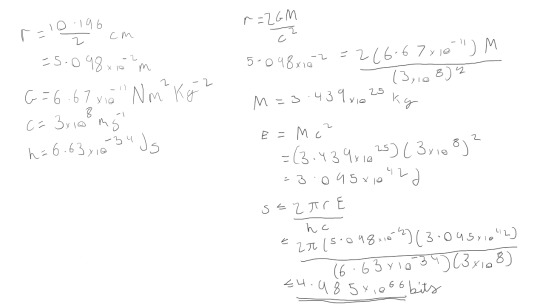 r = 10.196/2 cm
= 5.098×10⁻² m
G = 6.67×10⁻¹¹ Nm² Kg⁻²
c = 3×10⁸ ms⁻¹
h = 6.63×10⁻³⁴ Js
r = 2GM/c²
5.098×10⁻² = 2(6.67×10⁻¹¹) M/(3×10⁸)²
M = 3.439×10²⁵ kg
E = Mc²
= (3.439×10²⁵)(3×10⁸)²
= 3.095×10⁴² J
s ≤ 2πrE/hc
≤ 2π(5.098×10⁻²)(3.095×10⁴²)/(6.63×10⁻³⁴)(3×10⁸)
≤ 4.985×10⁶⁶ bits